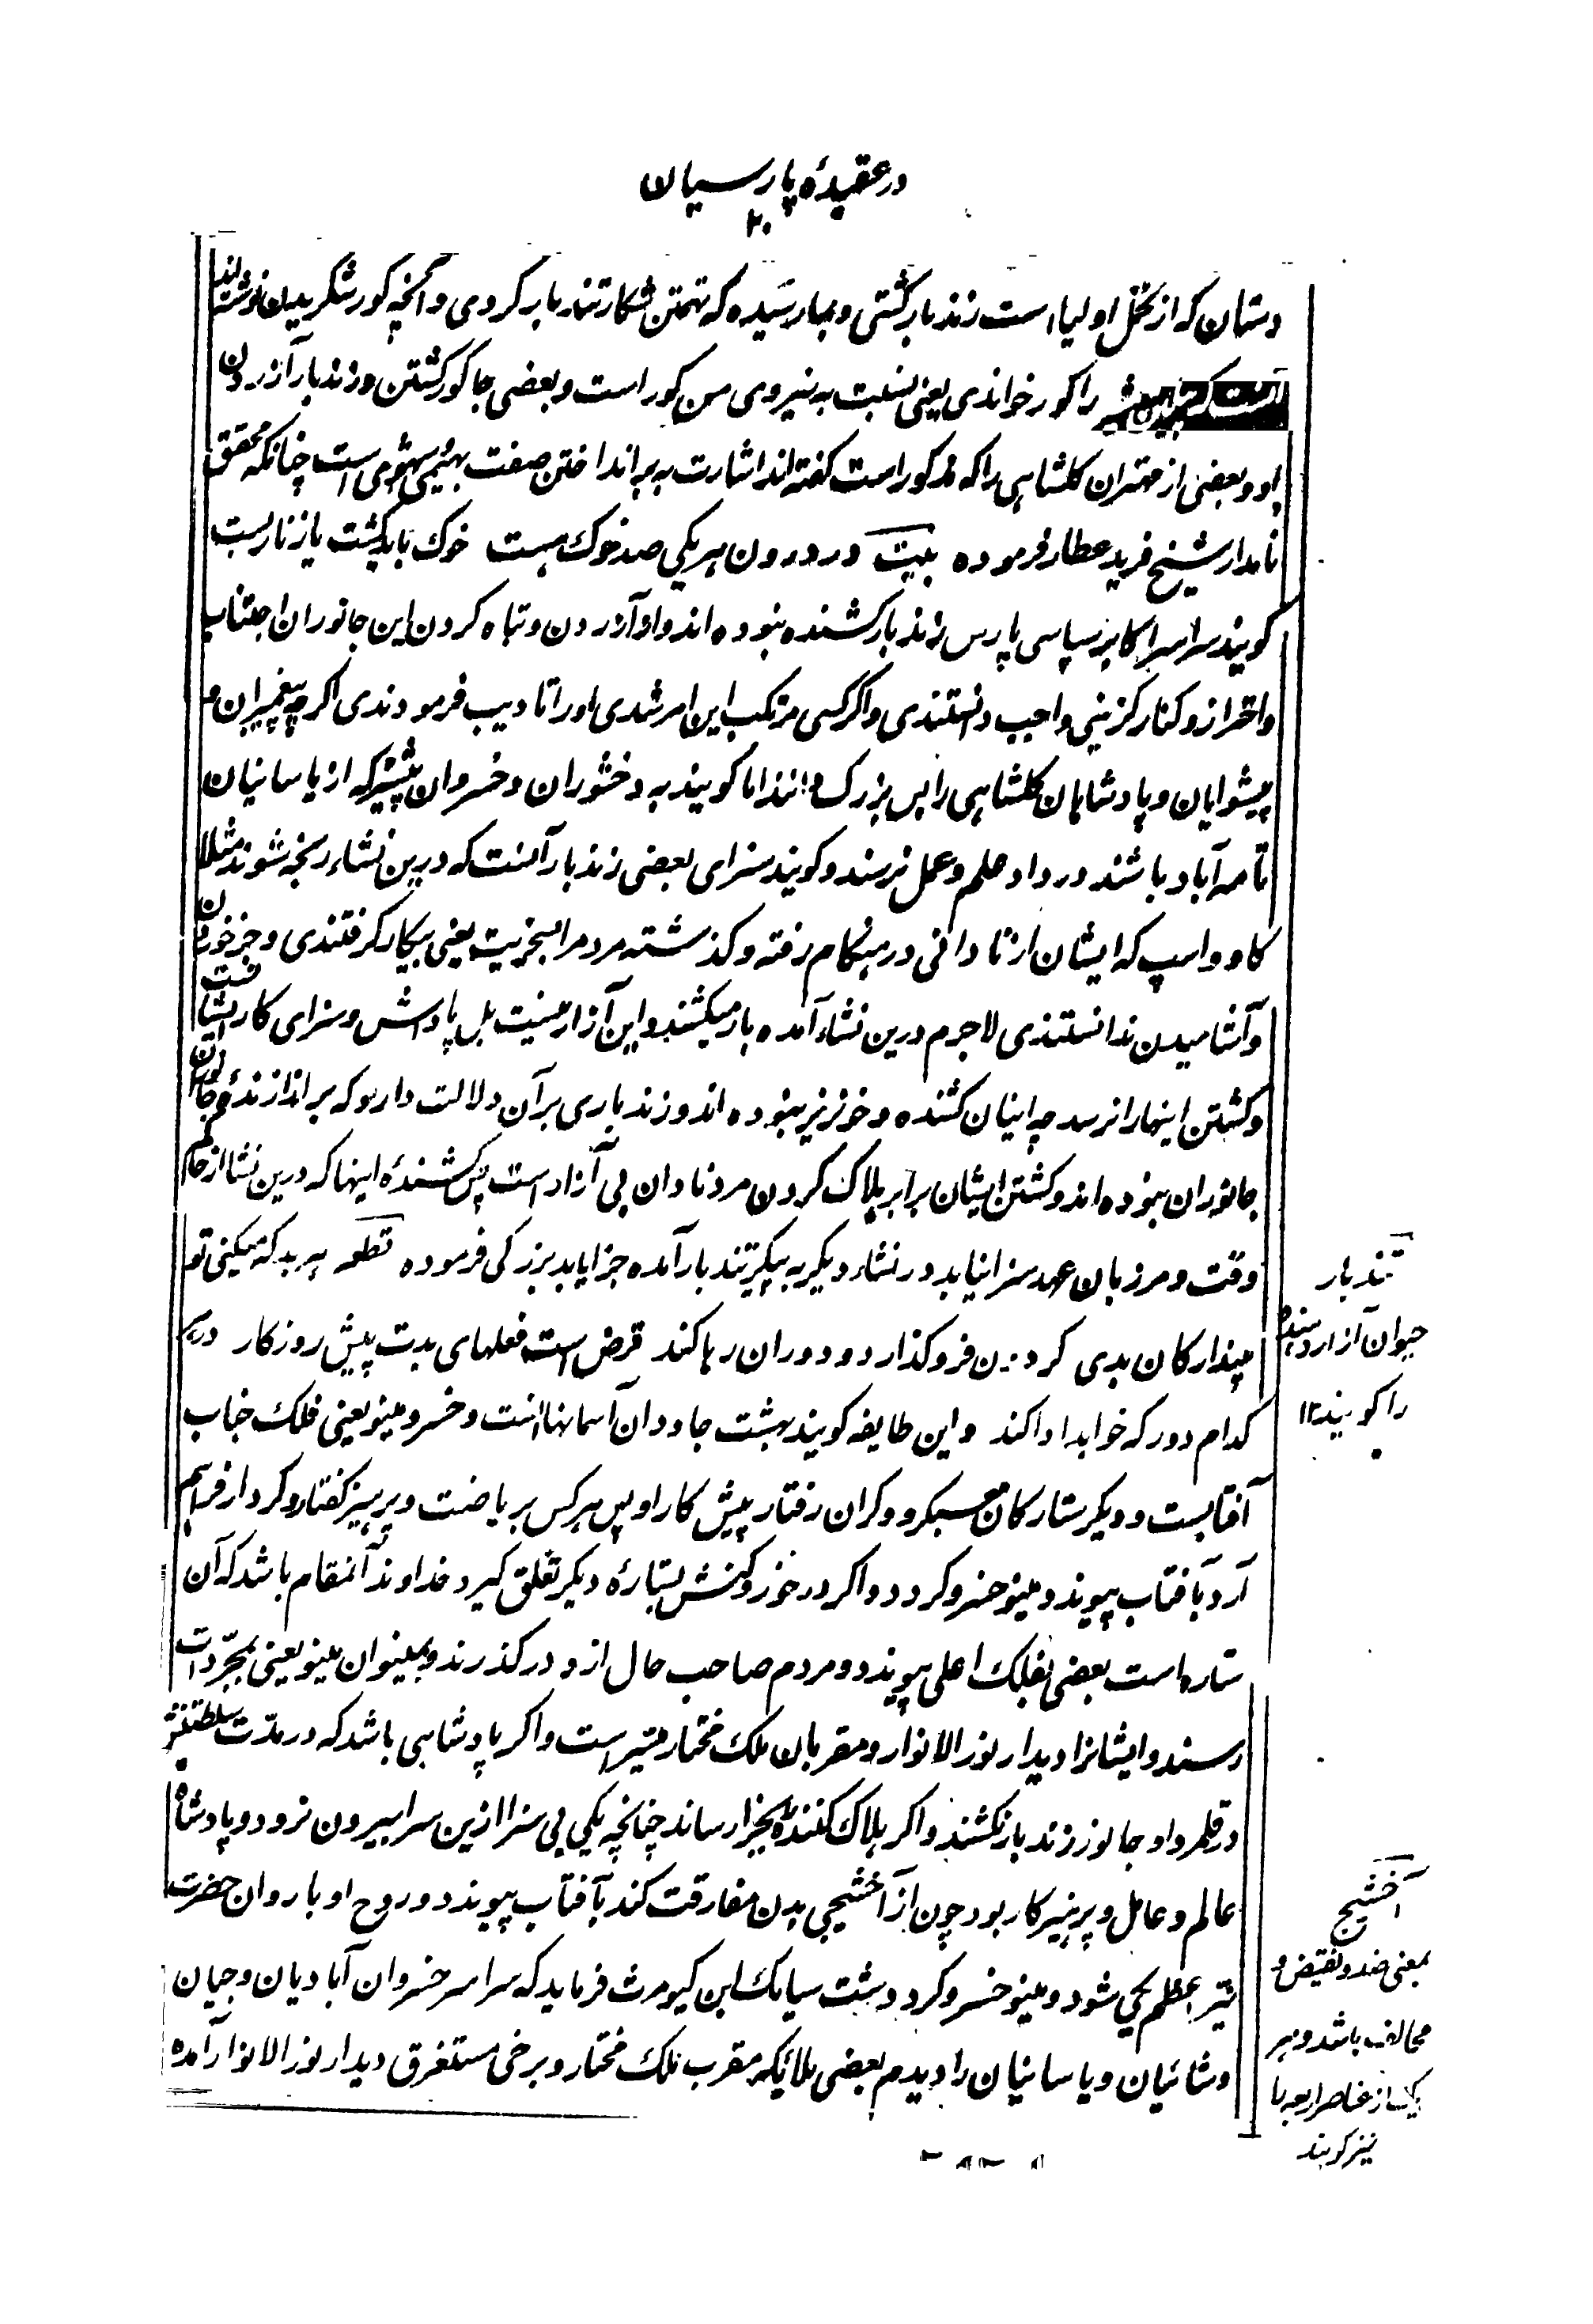 در عقیدهٔ پارسیان
۲۰
دستان که از کمّل اولیا است زندبار کشتی و بما رسیده که تهمتن شکار تندبار کردی و آنچه گور شکریدن نوشته‌اند
را گور خواندی یعنی نسبت به نیروی من گور است و بعضی جا گور کشتن و زندبار آزردن
او و بعضی از مهتران گلشاهی را که مذکور است گفته‌اند اشارت به بر انداختن صفت بهیمی و شهوی است چنانکه محقق
نامدار شیخ فرید عطار فرموده بیت در درون هر یکی صد خوک هست خوک باید کشت یا زنار بست
گویند سراسر اکابر سپاسی پارس زندبار کشنده نبوده‌اند و از آزردن و تباه کردن این جانوران اجتناب
و احتراز و کنارگزینی واجب دانستندی و اگر کسی مرتکب این امر شدی او را تادیب فرمودندی اگرچه پیغمبران و
پیشوایان و پادشاهان گلشاهی را بس بزرگ دانند اما گویند به وخشوران و خسروان پیشتر که از یاسانیان
تا مه‌آباد باشند در داد و علم و عمل نرسند و گویند سزای بعضی زندبار آنست که درین نشاء رنجه شوند مثلا
گاو و اسپ که ایشان از نادانی در هنگام رفته و گذشته مردم را بسخریت یعنی بیکار گرفتندی و جز خوردن
و آشامیدن ندانستندی لاجرم درین نشاء آمده بار میکشند و این آزار نیست بل پاداش و سزای کار ایشانست
و کشتن اینها را نرسد چه اینان کشنده و خونریز نبوده‌اند و زندباری بر آن دلالت دارد که بر اندازندهٔ جان
جانوران نبوده‌اند و کشتن ایشان برابر هلاک کردن مرد نادان بی آزار است پس کشندهٔ اینها که درین نشا از حاکم
وقت و مرزبان عهد سزا نیابد در نشاء دیگر به پیکر تندبار آمده جزا یابد بزرگی فرموده قطعه هر بد که میکنی تو
مپندار کان بدی گردون فرو گذارد و دوران رها کند قرض است فعلهای بدت پیش روزگار در هر
کدام دور که خواهد ادا کند و این طایفه گویند بهشت جاودان آسمانها است و خسرو مینو یعنی فلک جناب
آفتابست و دیگر ستارگان سبکرو و گران رفتار پیش کار او پس هر کس بریاضت و پرهیز گفتار و کردار فراهم
آرد بآفتاب پیوندد و مینو خسرو گردد و اگر در خور کنش بستارهٔ دیگر تعلق گیرد خداوند آنمقام باشد که آن
ستاره است بعضی بفلک اعلی پیوندد و مردم صاحب حال ازو در گذرند و بمینوان مینو یعنی بمجردات
رسند و ایشانرا دیدار نور الانوار و مقربان ملک مختار میسر است و اگر پادشاهی باشد که در مدت سلطنتش
در قلمرو او جانور زندبار نکشند و اگر هلاک کننده بجزا رساند چنانچه یکی بی سزا ازین سرا بیرون نرود و پادشاه
عالم و عامل و پرهیزگار بود چون از آخشیجی بدن مفارقت کند بآفتاب پیوندد و روح او با روان حضرت
نیر اعظم یکی شود و مینو خسرو گردد شت سیامک ابن کیومرث فرماید که سراسر خسروان آبادیان و جیان
و شائیان و یاسانیان را دیدم بعضی ملائکه مقرب ملک مختار و برخی مستغرق دیدار نور الانوار آمده
تندبار
حیوان آزار دهنده
را گویند ۱۲
آخشیج
بمعنی ضد و نقیض و
مخالف باشد و هر
یک از عناصر اربعه را
نیز گویند